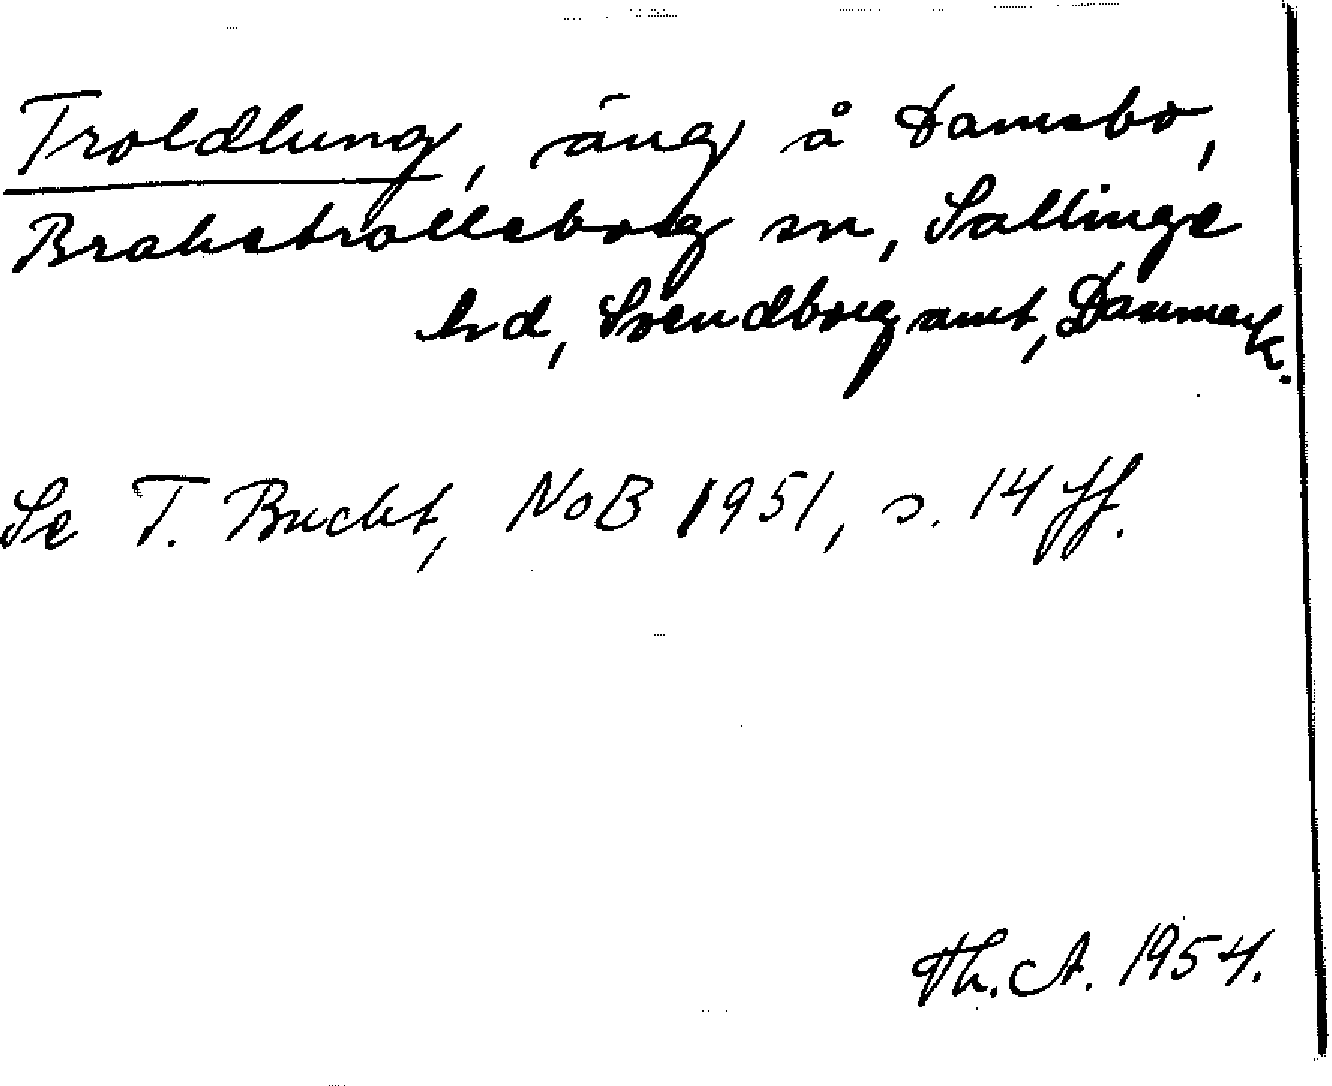 Troldlung, äng å Damsbo,
Brahetrolleborg sn, Sallinge
hd, Svendborg amt, Danmark.
Se T. Bucht, NoB 1951, s. 14 ff.
Th. A. 1954.